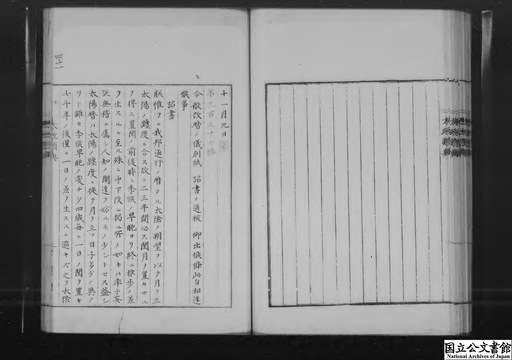 十一月九日
第三百三十七
今般改暦ノ儀別紙 詔書ノ通被 仰出候條此旨相達
候事
詔書
朕惟フニ我邦通行ノ暦タル太陰ノ朔望ヲ以テ月ヲ立
太陽ノ躔度ニ合ス故ニ二三年間必ス閏月ヲ置カサル
ヲ得ス置閏ノ前後時ニ季候ノ早晩アリ終ニ推歩ノ差
ヲ生スルニ至ル殊ニ中下段ニ掲ル所ノ如キハ率子妄
誕無稽ニ属シ人知ノ開達ヲ妨ルモノ少シトセス盖シ
太陽暦ハ太陽ノ躔度ニ従テ月ヲ立ツ日子多少ノ異ア
リト雖モ季候早晩ノ変ナク四歳毎ニ一日ノ閏ヲ置キ
七千年ノ後僅ニ一日ノ差ヲ生スルニ過キス之ヲ太陰
国立公文書館
National Archives of Japan